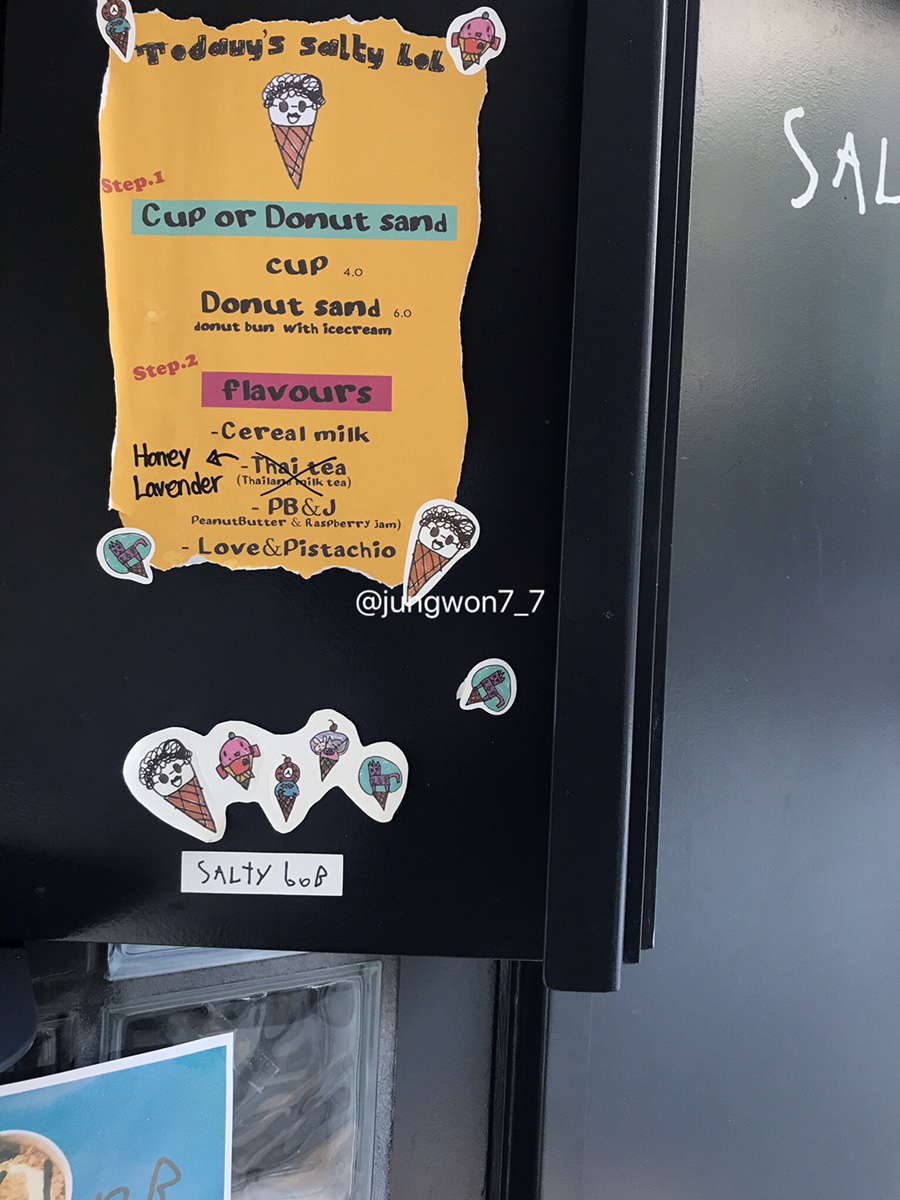 Todauy's salty bob
Step.1
Cup or Donut sand
cup 4.0
Donut sand 6.0
donut bun with icecream
Step.2
flavours
-Cereal milk
Honey Lavender
-Thai tea
(Thailand milk tea)
- PB&J
PeanutButter & Raspberry jam)
- Love&Pistachio
@jungwon7_7
SALTY boB
SAL